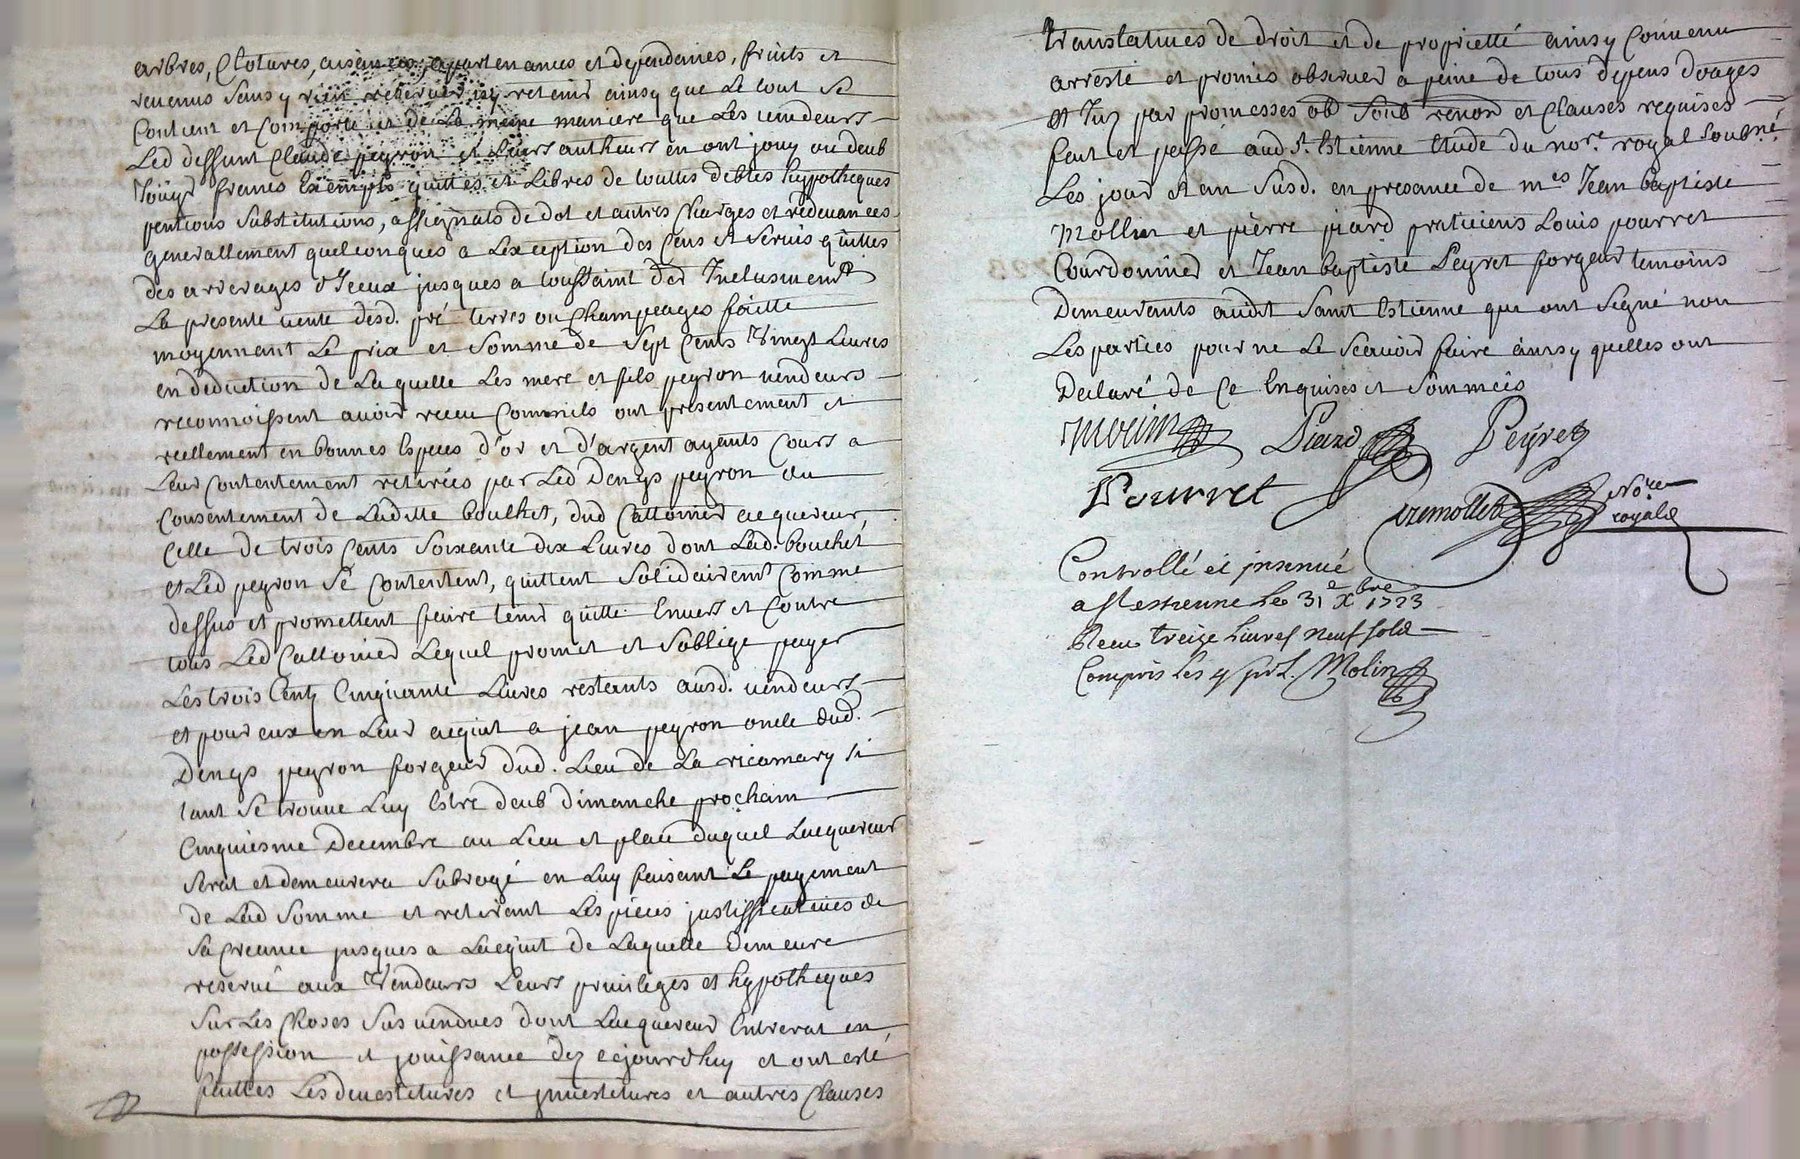 arbres, Clotures, aisances, apartenances et dependances, fruits et
revenus sans y rien reserver ny retenir ainsy que Le tout se
Contient et Comporte et de La meme maniere que Les vendeurs
Led deffunt Claude peyron et Leurs autheurs en ont jouy ou deub
Jouyr francs Exempts quittes et Libres de touttes debtes hypotheques
pentions substitutions, assignats de dot et autres Charges et redevances
generallement quelconques a Lexception des Cens et servis quittes
des arrerages d'Iceux jusques a toussaint der Inclusivemt
La presente vente desd. pré terres ou Champeages faitte
moyennant Le prix et somme de sept Cents Vingt Livres
en deduction de Laquelle Les mere et fils peyron vendeurs
reconnoissent avoir receu Comm'ils ont presentement et
reellement en bonnes Especes d'or et d'argent ayants Cours a
Leur Contentement retirées par Led Denys peyron du
Consentement de Laditte bouchet, dud Cattonier acquereur,
Celle de trois Cents soixante dix Livres dont Lad. bouchet
et Led peyron se Contentent, quittent solidairemt Comme
dessus et promettent faire tenir quitte Envers et Contre
tous Led Cattonier Lequel promet et s'oblige payer
Les trois Cents Cinquante Livres restants ausd. vendeurs
et pour eux en Leur acquit a jean peyron oncle dud.
Denys peyron forgeur dud. Lieu de La ricamary si
tant se trouve Luy Estre deub dimanche prochain
Cinquiesme Decembre au Lieu et place duquel Lacquereur
serat et demeurera subrogé en Luy faisant Le payement
de Lad somme et retirant Les pieces justifficatives de
sa Creance jusques a Lacquit de Laquelle Demeure
reservé aux Vendeurs Leurs privileges et hypotheques
sur Les Choses sus vendues dont Lacquereur Entrerat en
possession et jouissance dez cejourdhuy et ont esté
faittes Les devestitures et jnvestitures et autres Clauses
translatives de droit et de proprietté ainsy Convenu
arresté et promis observer a peine de tous depens domages
et Intz par promesses ob soub renon et Clauses requises
fait et passé aud St. Estienne Etude du nore. royal soubné.
Les jour et an susd. en presance de mes Jean baptiste
Mollin et pierre piard praticiens Louis pourret
Courdonnier et Jean baptiste Peyret forgeur temoins
Demeurants audit saint Estienne que ont signé non
Les parties pour ne Le scavoir faire ainsy quelles ont
Declaré de Ce Enquises et sommeés
Molin Piard Peyret
Pourret Nore
royal
Controllé et jnsinué
a St estienne Le 31e Xbre 1723
Receu treize Livres neuf sols
Compris Les Molin